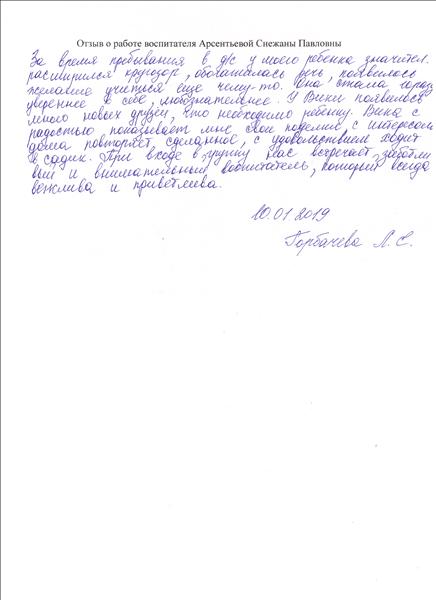 Отзыв о работе воспитателя Арсентьевой Снежаны Павловны
За время пребывания в д/с у моего ребенка значител.
расширился кругозор, обогатилась речь, появилось
желание учиться еще чему-то. Она стала гораздо
увереннее в себе, любознательнее. У Вики появилось
много новых друзей, что необходимо ребенку. Вика с
радостью показывает мне свои поделки, с интересом
дома повторяет сделанное, с удовольствием ходит
в садик. При входе в группу нас встречает заботли
вый и внимательный воспитатель, который всегда
вежлива и приветлива.
10.01.2019
Горбачева Л. С.